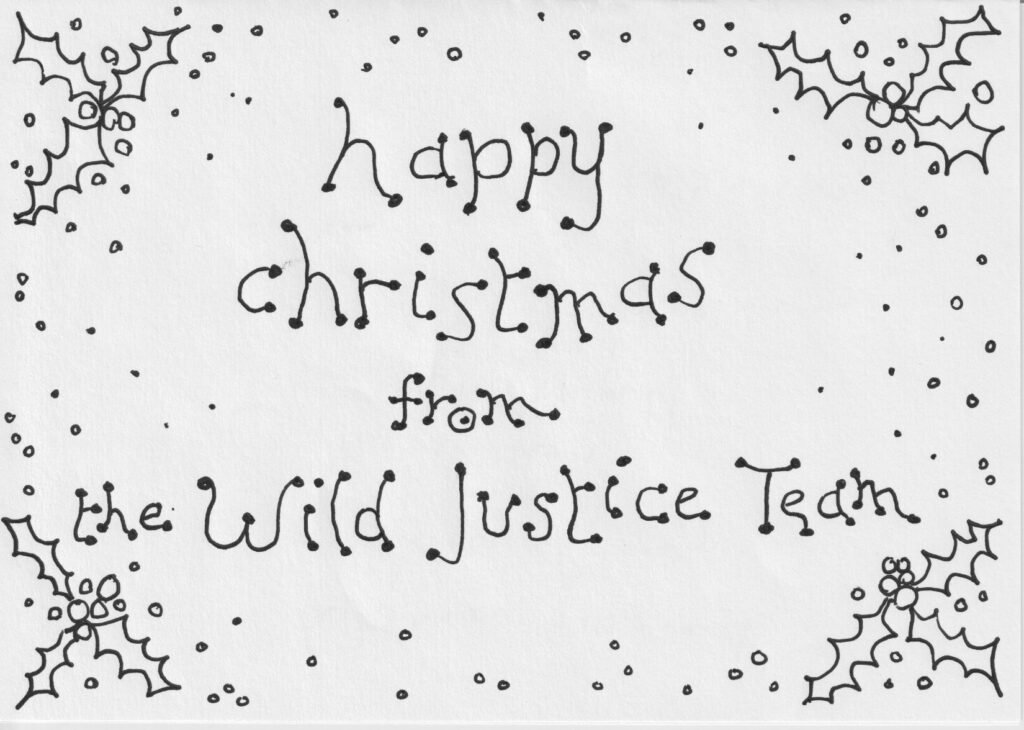 happy
christmas
from
the Wild Justice Team